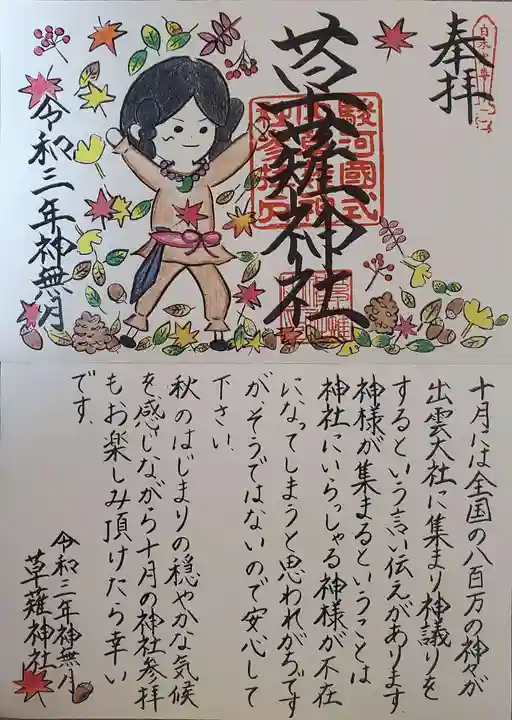 奉拝
草薙神社
令和三年神無月
十月には全国の八百万の神々が
出雲大社に集まり神議りを
するという言い伝えがあります
神様が集まるということは
神社にいらっしゃる神様が不在
になってしまうと思われがちです
がそうではないので安心して
下さい.
秋のはじまりの穏やかな気候
を感じながら十月の神社参拝
もお楽しみ頂けたら幸い
です.
令和三年神無月
草薙神社